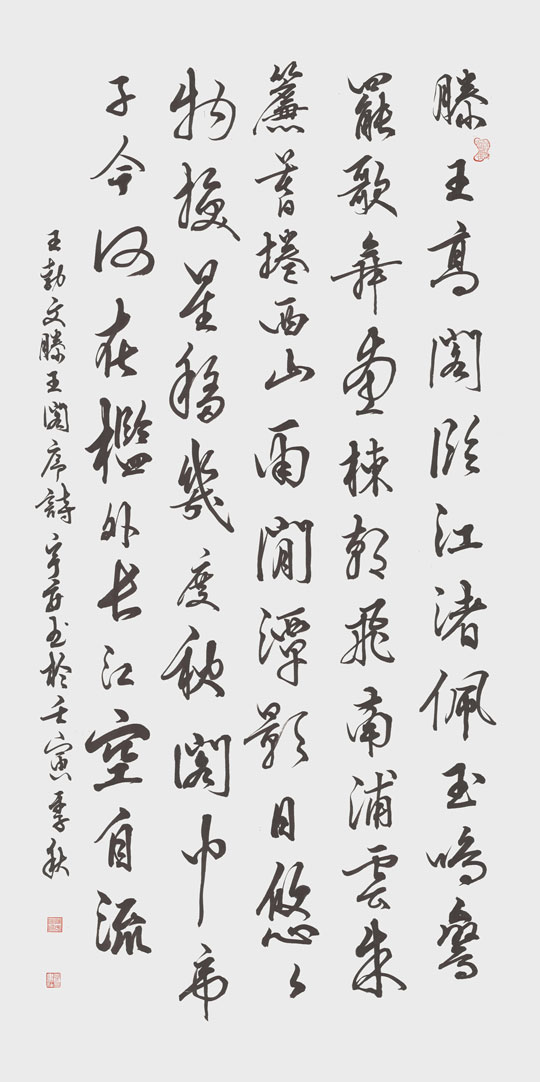 滕王高閣臨江渚佩玉鳴鸞
罷歌舞畫棟朝飛南浦雲朱
簾暮捲西山雨閒潭影日悠々
物換星移幾度秋閣中帝
子今何在檻外長江空自流
王勃文滕王閣序詩書於壬寅季秋